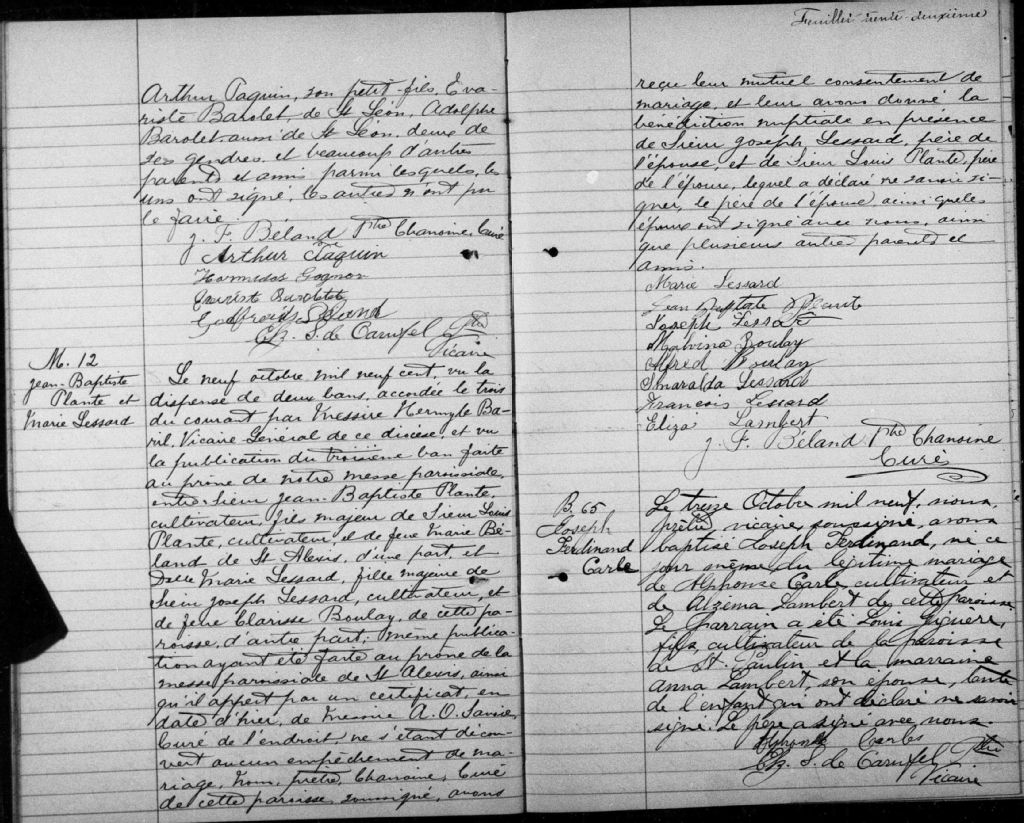 Arthur Paquin, son petit-fils, Eva-
riste Barolet, de St Léon, Adolphe
Barolet aussi de St Léon, deux de
ses gendres, et beaucoup d'autres
parents et amis parmi lesquels, les
uns ont signé, les autres n'ont pu
le faire.
J. F. Béland Ptre Chanoine, Curé
Arthur Paquin
Hormisdas Gagnon
Godfroid Béland
Ch. S. de Carufel Ptre
Vicaire
M. 12
Jean-Baptiste
Plante et
Marie Lessard
Le neuf octobre, mil neuf cent, vu la
dispense de deux bans, accordée le trois
du courant par Messire Hermyle Ba-
ril, Vicaire Général de ce diocèse, et vu
la publication du troisième ban faite
au prône de notre messe paroissiale,
entre Sieur Jean-Baptiste Plante,
cultivateur, fils majeur de Sieur Louis
Plante, cultivateur et de feue Marie Bé-
land de St Alexis, d'une part, et
Delle Marie Lessard, fille majeure de
Sieur Joseph Lessard, cultivateur, et
de feue Clarisse Boulay, de cette pa-
roisse, d'autre part; même publica-
tion ayant été faite au prône de la
messe paroissiale de St Alexis, ainsi
qu'il appert par un certificat, en
date d'hier, de Messire A. O.
Curé de l'endroit ne s'étant décou-
vert aucun empêchement de ma-
riage, Nous, prêtre, Chanoine, Curé
de cette paroisse, soussigné, avons
Feuillet trente-deuxième
reçu leur mutuel consentement de
mariage, et leur avons donné la
bénédiction nuptiale en présence
de Sieur Joseph Lessard, père de
l'épouse, et de Sieur Louis Plante, père
de l'époux, lequel a déclaré ne savoir si-
gner, le père de l'épouse ainsi que les
époux ont signé avec nous, ainsi
que plusieurs autres parents et
amis.
Marie Lessard
Jean Baptiste Plante
Joseph Lessard
Malvina Boulay
Alfred Boulay
Smaralda Lessard
Francois Lessard
Eliza Lambert
J. F. Béland Ptre Chanoine
Curé
B. 65
Joseph
Ferdinand
Carle
Le treize Octobre mil neuf, nous,
prêtre, vicaire, soussigné, avons
baptisé Joseph Ferdinand, né ce
jour même du légitime mariage
de Alphonse Carle, cultivateur et
de Alzéma Lambert de cette paroisse.
Le parrain a été Louis
fils, cultivateur de la paroisse
de St. Paulin et la marraine
Anna Lambert, son épouse, tante
de l'enfant qui ont déclaré ne savoir
signer. Le père a signé avec nous.
Alphonse Carles
Ch. S. de Carufel Ptre
Vicaire